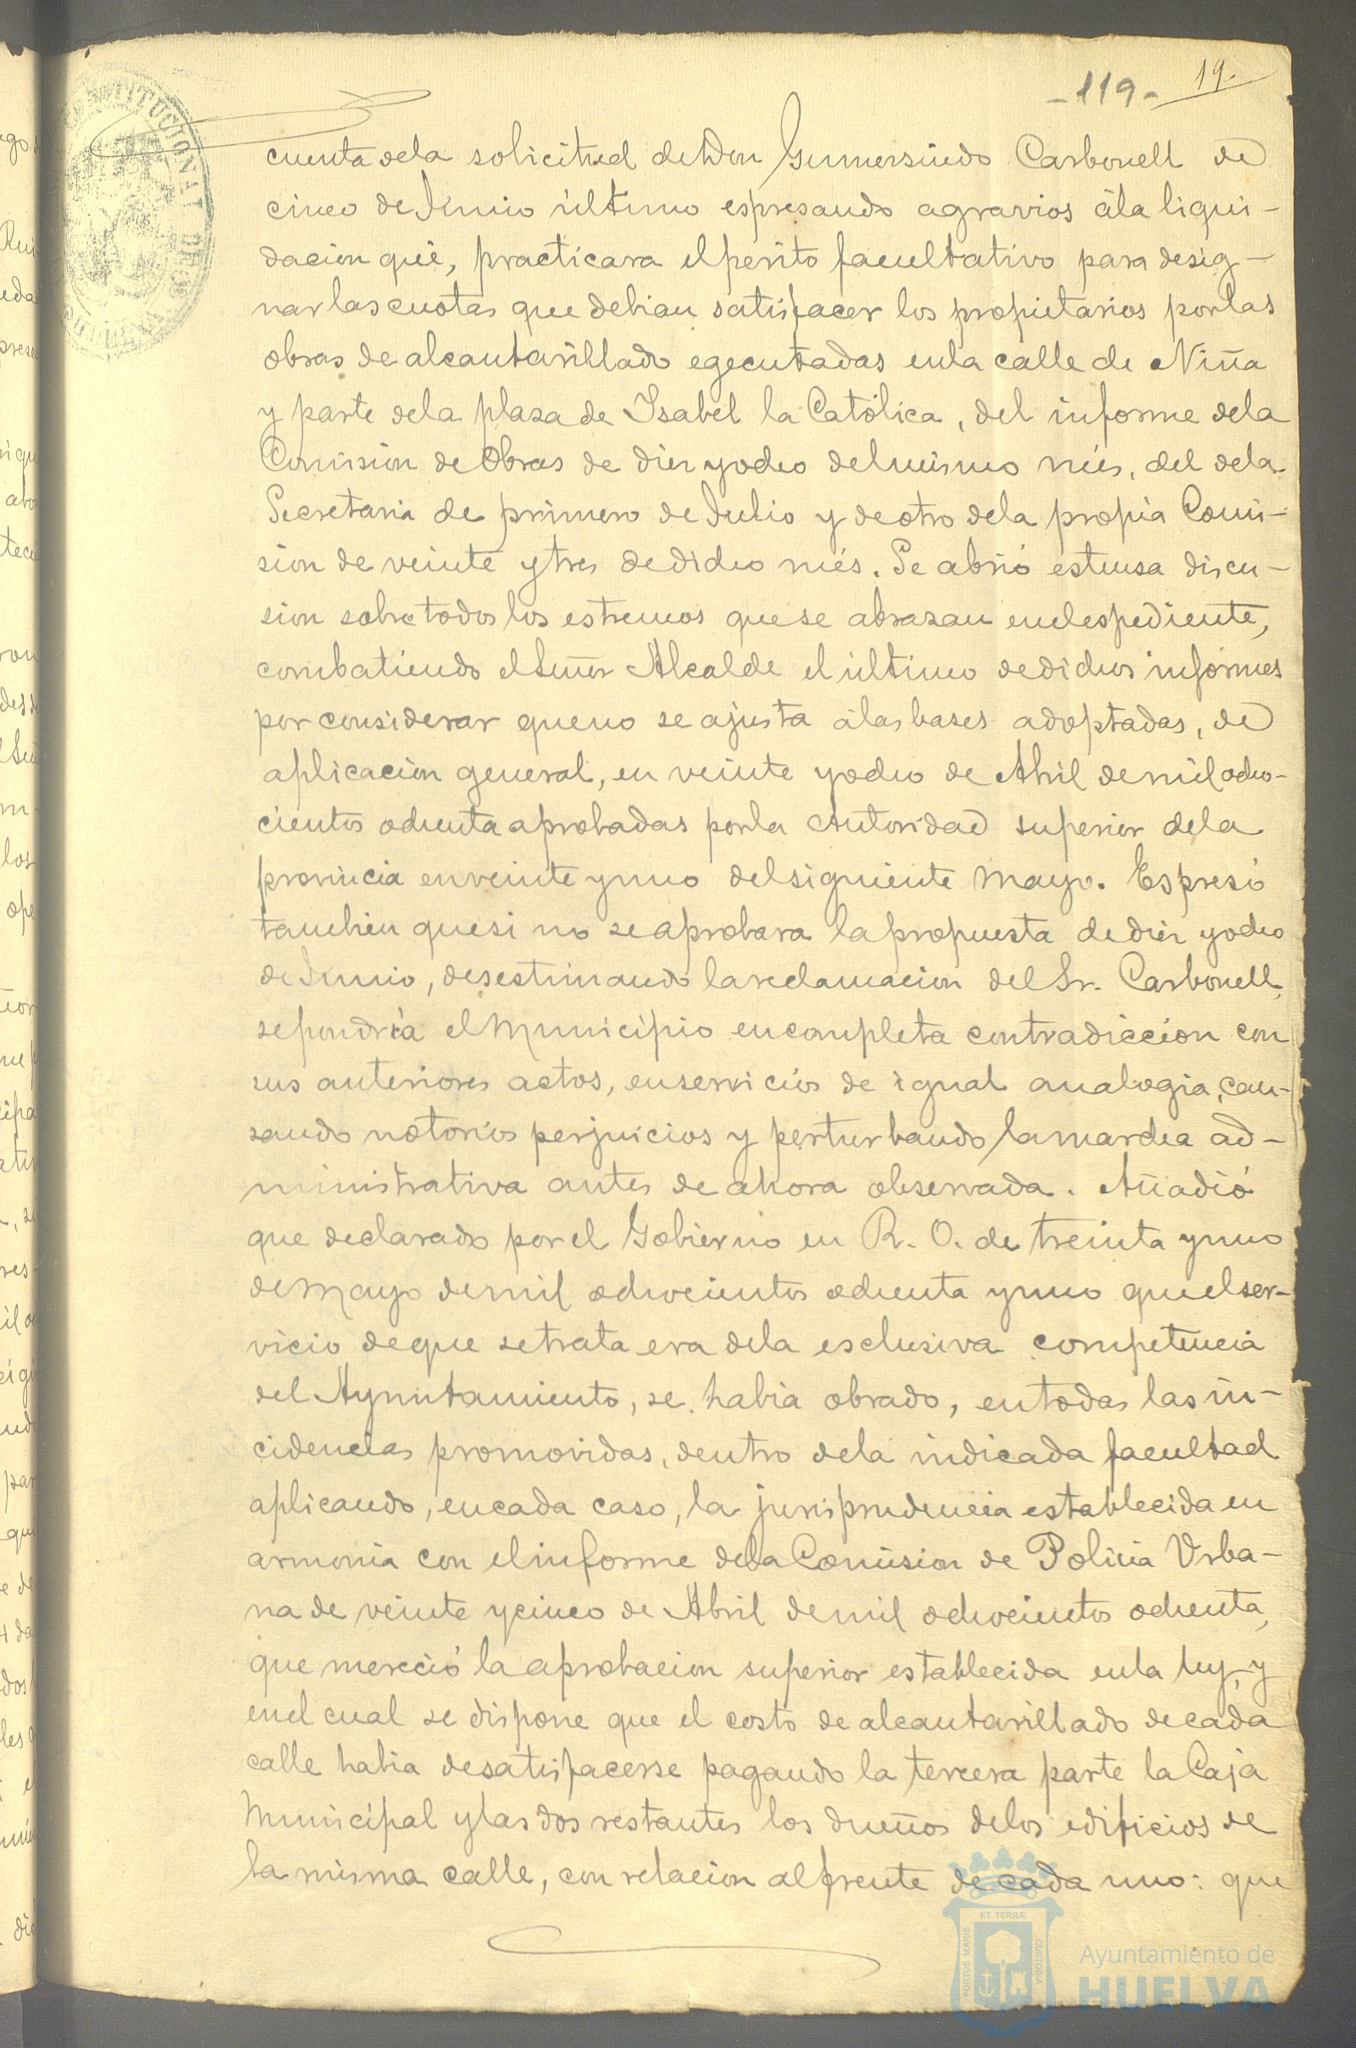 -119-
19.
cuenta dela solicitud de Don Gumersindo Carbonell de
cinco de Junio último espresando agravios á la liqui-
dacion que, practicara el perito facultativo para desig-
nar las cuotas que debian satisfacer los propietarios por las
obras de alcantarillado egecutadas en la calle de Niña
y parte dela plaza de Isabel la Católica, del informe dela
Comision de Obras de diez y ocho del mismo més, del dela
Secretaria de primero de Julio y de otro dela propia Comi-
sion de veinte y tres de dicho més. Se abrió estensa discu-
sion sobre todos los estremos que se abrazan en el espediente,
combatiendo el Señor Alcalde el último de dichos informes
por considerar que no se ajusta á las bases adoptadas, de
aplicacion general, en veinte y ocho de Abril de mil ocho-
cientos ochenta aprobadas por la Autoridad superior dela
provincia en veinte y uno del siguiente Mayo. Espresó
tambien que si no se aprobara la propuesta de diez y ocho
de Junio, desestimando la reclamacion del Sr. Carbonell,
se pondría el Municipio en completa contradiccion con
sus anteriores actos, en servicios de igual analogia, cau-
sando notorios perjuicios y perturbando la marcha ad-
ministrativa antes de ahora observada. Añadió
que declarado por el Gobierno en R. O. de treinta y uno
de Mayo de mil ochocientos ochenta y uno que el ser-
vicio de que se trata era dela esclusiva competencia
del Ayuntamiento, se habia obrado, en todas las in-
cidencias promovidas, dentro dela indicada facultad
aplicando, en cada caso, la jurisprudencia establecida en
armonia con el informe dela Comision de Policia Urba-
na de veinte y cinco de Abril de mil ochocientos ochenta,
que mereció la aprobacion superior establecida en la ley, y
en el cual se dispone que el costo de alcantarillado de cada
calle habia de satisfacerse pagando la tercera parte la Caja
Municipal y las dos restantes los dueños delos edificios de
la misma calle, con relacion al frente de cada uno: que
PORTUS MARIS
ET TERRÆ
CUSTODIA
Ayuntamiento de
HUELVA